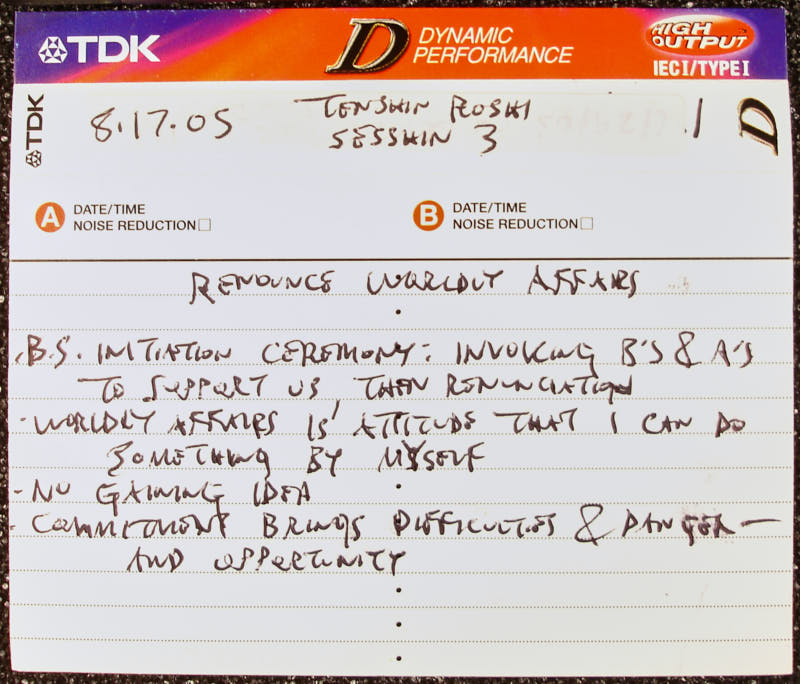 TDK D DYNAMIC PERFORMANCE HIGH OUTPUT IECI/TYPE I
TDK 8.17.05 TENSHIN ROSHI 1 D
SESSHIN 3
A DATE/TIME B DATE/TIME
NOISE REDUCTION NOISE REDUCTION
RENOUNCE WORLDLY AFFAIRS
· B.S. INITIATION CEREMONY: INVOKING B'S & A'S
TO SUPPORT US, THEN RENUNCIATION
- WORLDLY AFFAIRS IS ATTITUDE THAT I CAN DO
SOMETHING BY MYSELF
- NO GAINING IDEA
- COMMITMENT BRINGS DIFFICULTIES & DANGER —
AND OPPORTUNITY